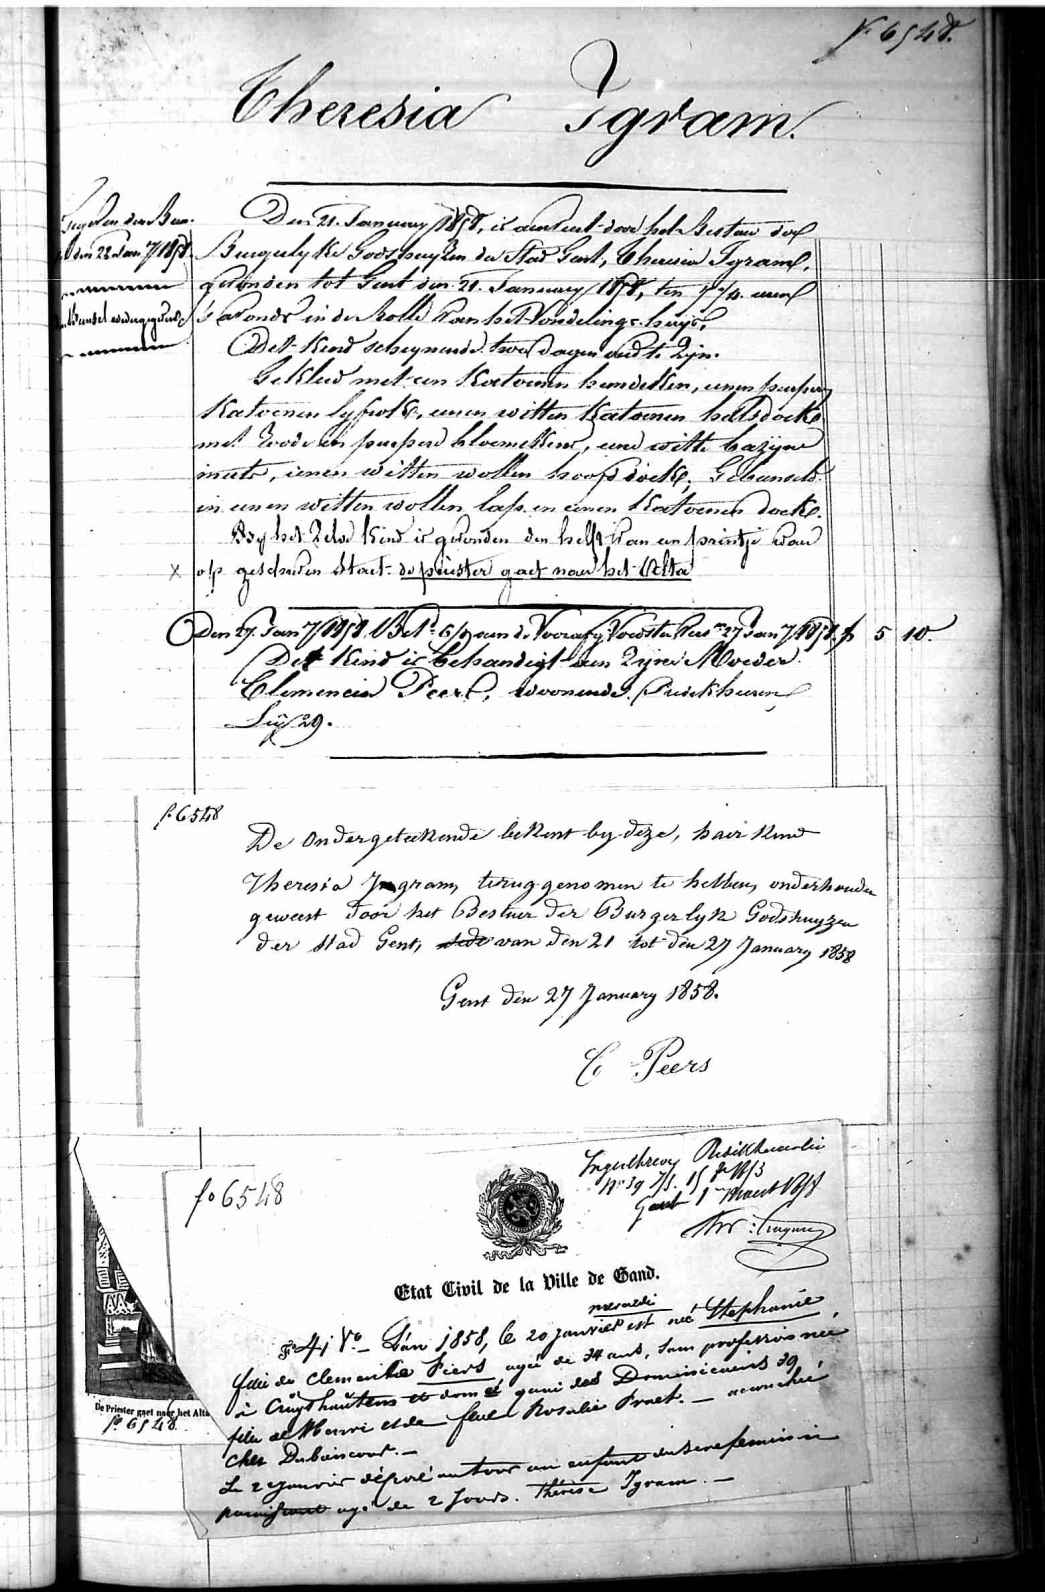 fo 6548.
Theresia Igram.
Ingeschreven den Bur.
den 22 Jan 7/1858.
Den 21. January 1858, is aenveert door het Bestuer der
Burgerlyke Godshuyzen der Stad Gent, Theresia Igram,
gevonden tot Gent den 21. January 1858, ten 7 1/4. uren
's avonds in de Rolle van het Vondelingshuys,
Det Kind scheynende twee dagen oud te Zyn.
Gekleed met een Katoenen hemdeken, eenen purperen
Katoenen lyfrok, eenen witten Katoenen halsdoeke
met Roode en purpere bloemekens, eene witte bazyne
muts, eenen witten wollen hoofddoeke, Gebunseld
in eenen witten wollen lap en eenen Katoenen doeke.
By het Zelve Kind is gevonden den helft van een printje waer
x op geschreven staet: de priester gaet naer het Alta
Den 27. Jan 7/1858. Bet. 6/9 aen de Voorafg. Voedster Pers. 27 Jan 7/1858. f 5 10.
Det Kind is behandigt aen Zyne Moeder
Clemencia Peers, woonende Predikheeren
Ly 29.
f. 6548
De ondergeteekende bekent by deze, haer kind
Theresia Igram, teruggenomen te hebben, onderhouden
geweest door het Bestuer der Burgerlyk Godshuyzen
der stad Gent, van den 21 tot den 27 January 1858
Gent den 27 January 1858.
C Peers
fo 6548
Predikheerenlei
Gent 1 Maert 1858
Etat Civil de la Ville de Gand.
mercredi
41 Vo. L'an 1858, le 20 janvier est née Stephanie,
fille de Clementine Piers, agée de 34 ans, sans profession née
à Cruyshautem et dom é quai des Dominicains 39,
fille de Henri et de feue Rosalie Praet. accouchée
chez Dubaincour.
Le 2 janvier déposé au tour un enfant du sexe feminin
paraissant agé de 2 Jours. Thérèse Igram.
De Priester gaet naer het Alta
fo 6548